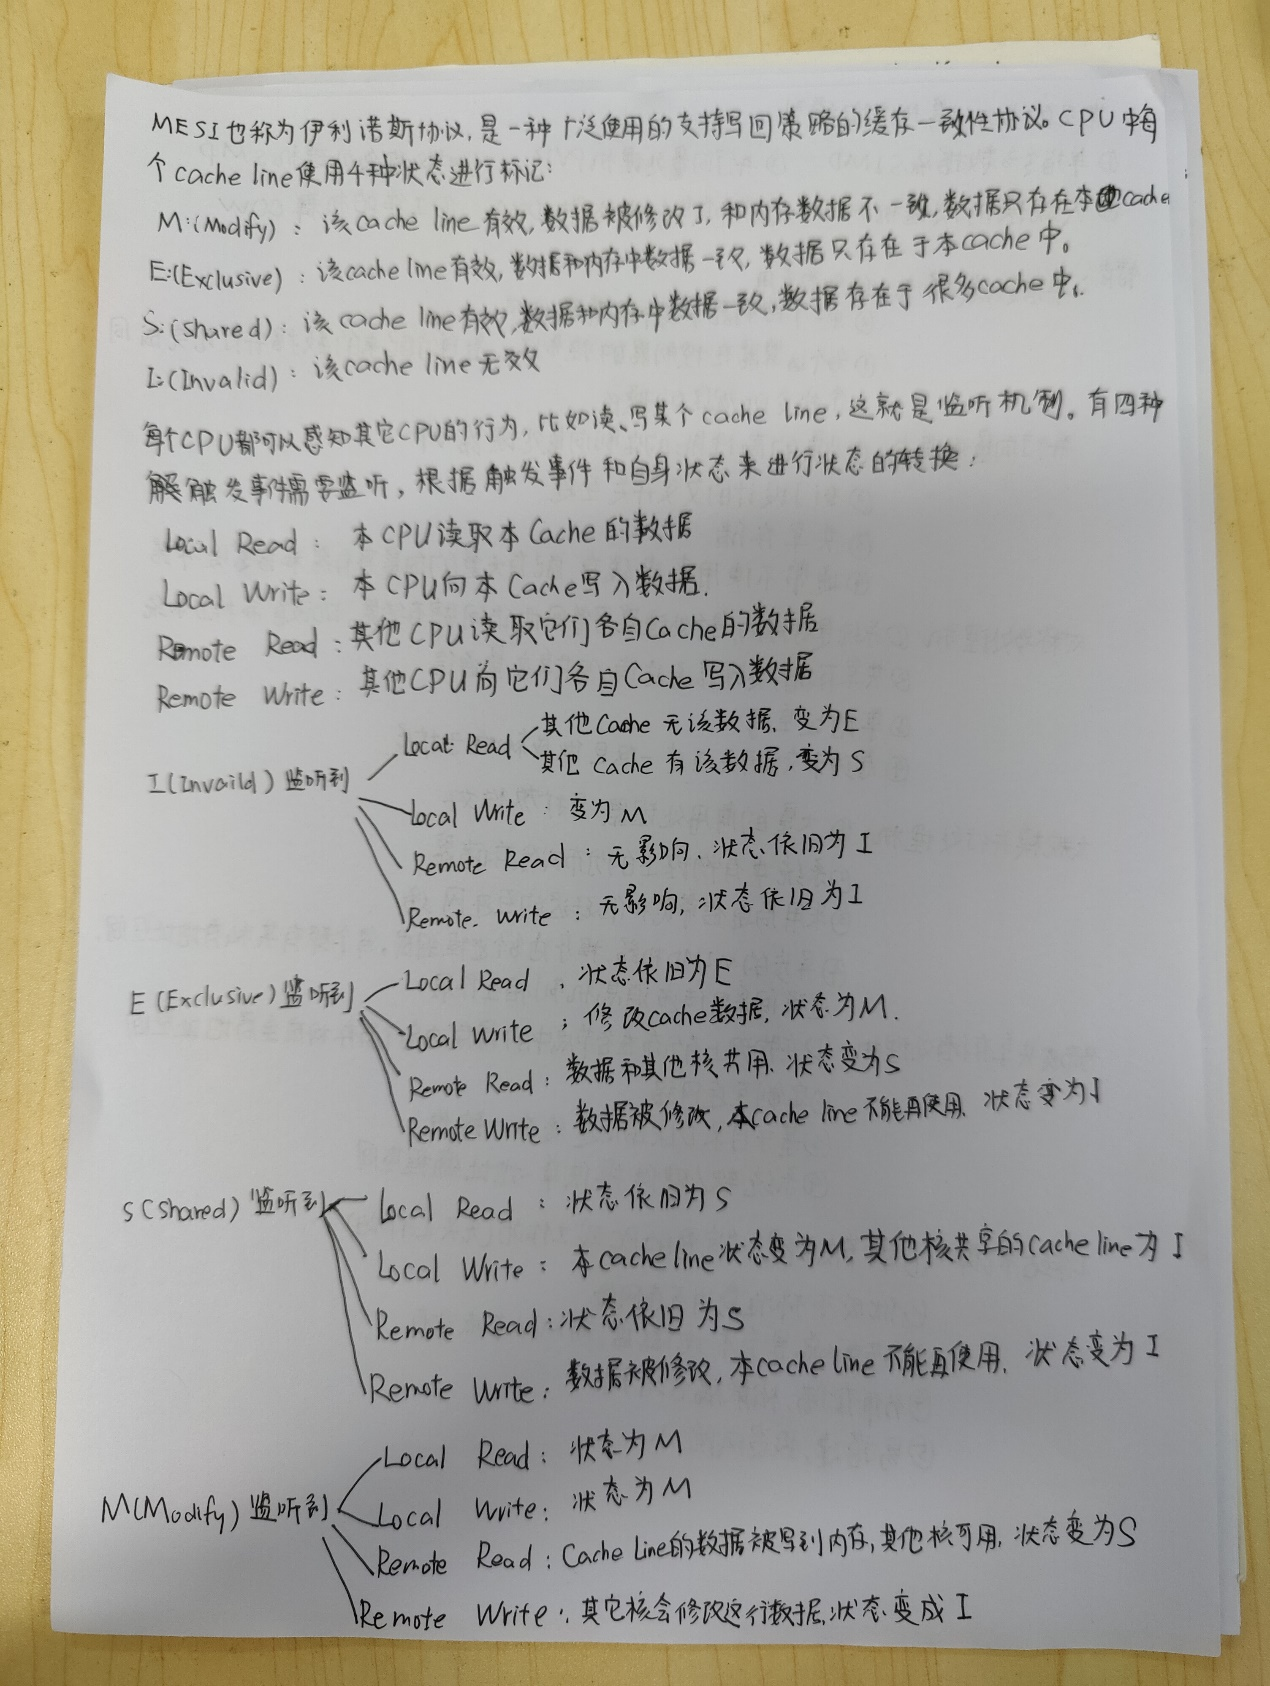 MESI也称为伊利诺斯协议,是一种广泛使用的支持写回策略的缓存一致性协议。CPU中每
个cache line使用4种状态进行标记:
M:(Modify): 该cache line有效,数据被修改了,和内存数据不一致,数据只存在本cache
E:(Exclusive): 该cache line有效,数据和内存中数据一致,数据只存在于本cache中。
S:(shared): 该cache line有效,数据和内存中数据一致,数据存在于很多cache中。
I:(Invalid): 该cache line无效
每个CPU都可以感知其它CPU的行为,比如读、写某个cache line,这就是监听机制。有四种
触发事件需要监听,根据触发事件和自身状态来进行状态的转换:
Local Read: 本CPU读取本Cache的数据
Local Write: 本CPU向本Cache写入数据.
Remote Read:其他CPU读取它们各自Cache的数据
Remote Write: 其他CPU向它们各自Cache写入数据
I(Invaild)监听到
Local Read
其他Cache无该数据,变为E
其他cache有该数据,变为S
Local Write: 变为M
Remote Read: 无影响、状态依旧为I
Remote. write: 无影响,状态依旧为I
E(Exclusive)监听到
Local Read , 状态依旧为E
Local Write ; 修改cache数据,状态为M.
Remote Read: 数据和其他核共用、状态变为S
Remote Write: 数据被修改,本cache line不能再使用、状态变为I
S(Shared)监听到
Local Read: 状态依旧为S
Local Write: 本cache line状态变为M,其他核共享的cache line为I
Remote Read:状态依旧为S
Remote Write: 数据被修改,本cache line不能再使用、状态变为I
M(Modify)监听到
Local Read: 状态为M
Local Write: 状态为M
Remote Read: Cache Line的数据被写到内存,其他核可用,状态变为S
Remote Write: 其它核会修改这行数据,状态变成I